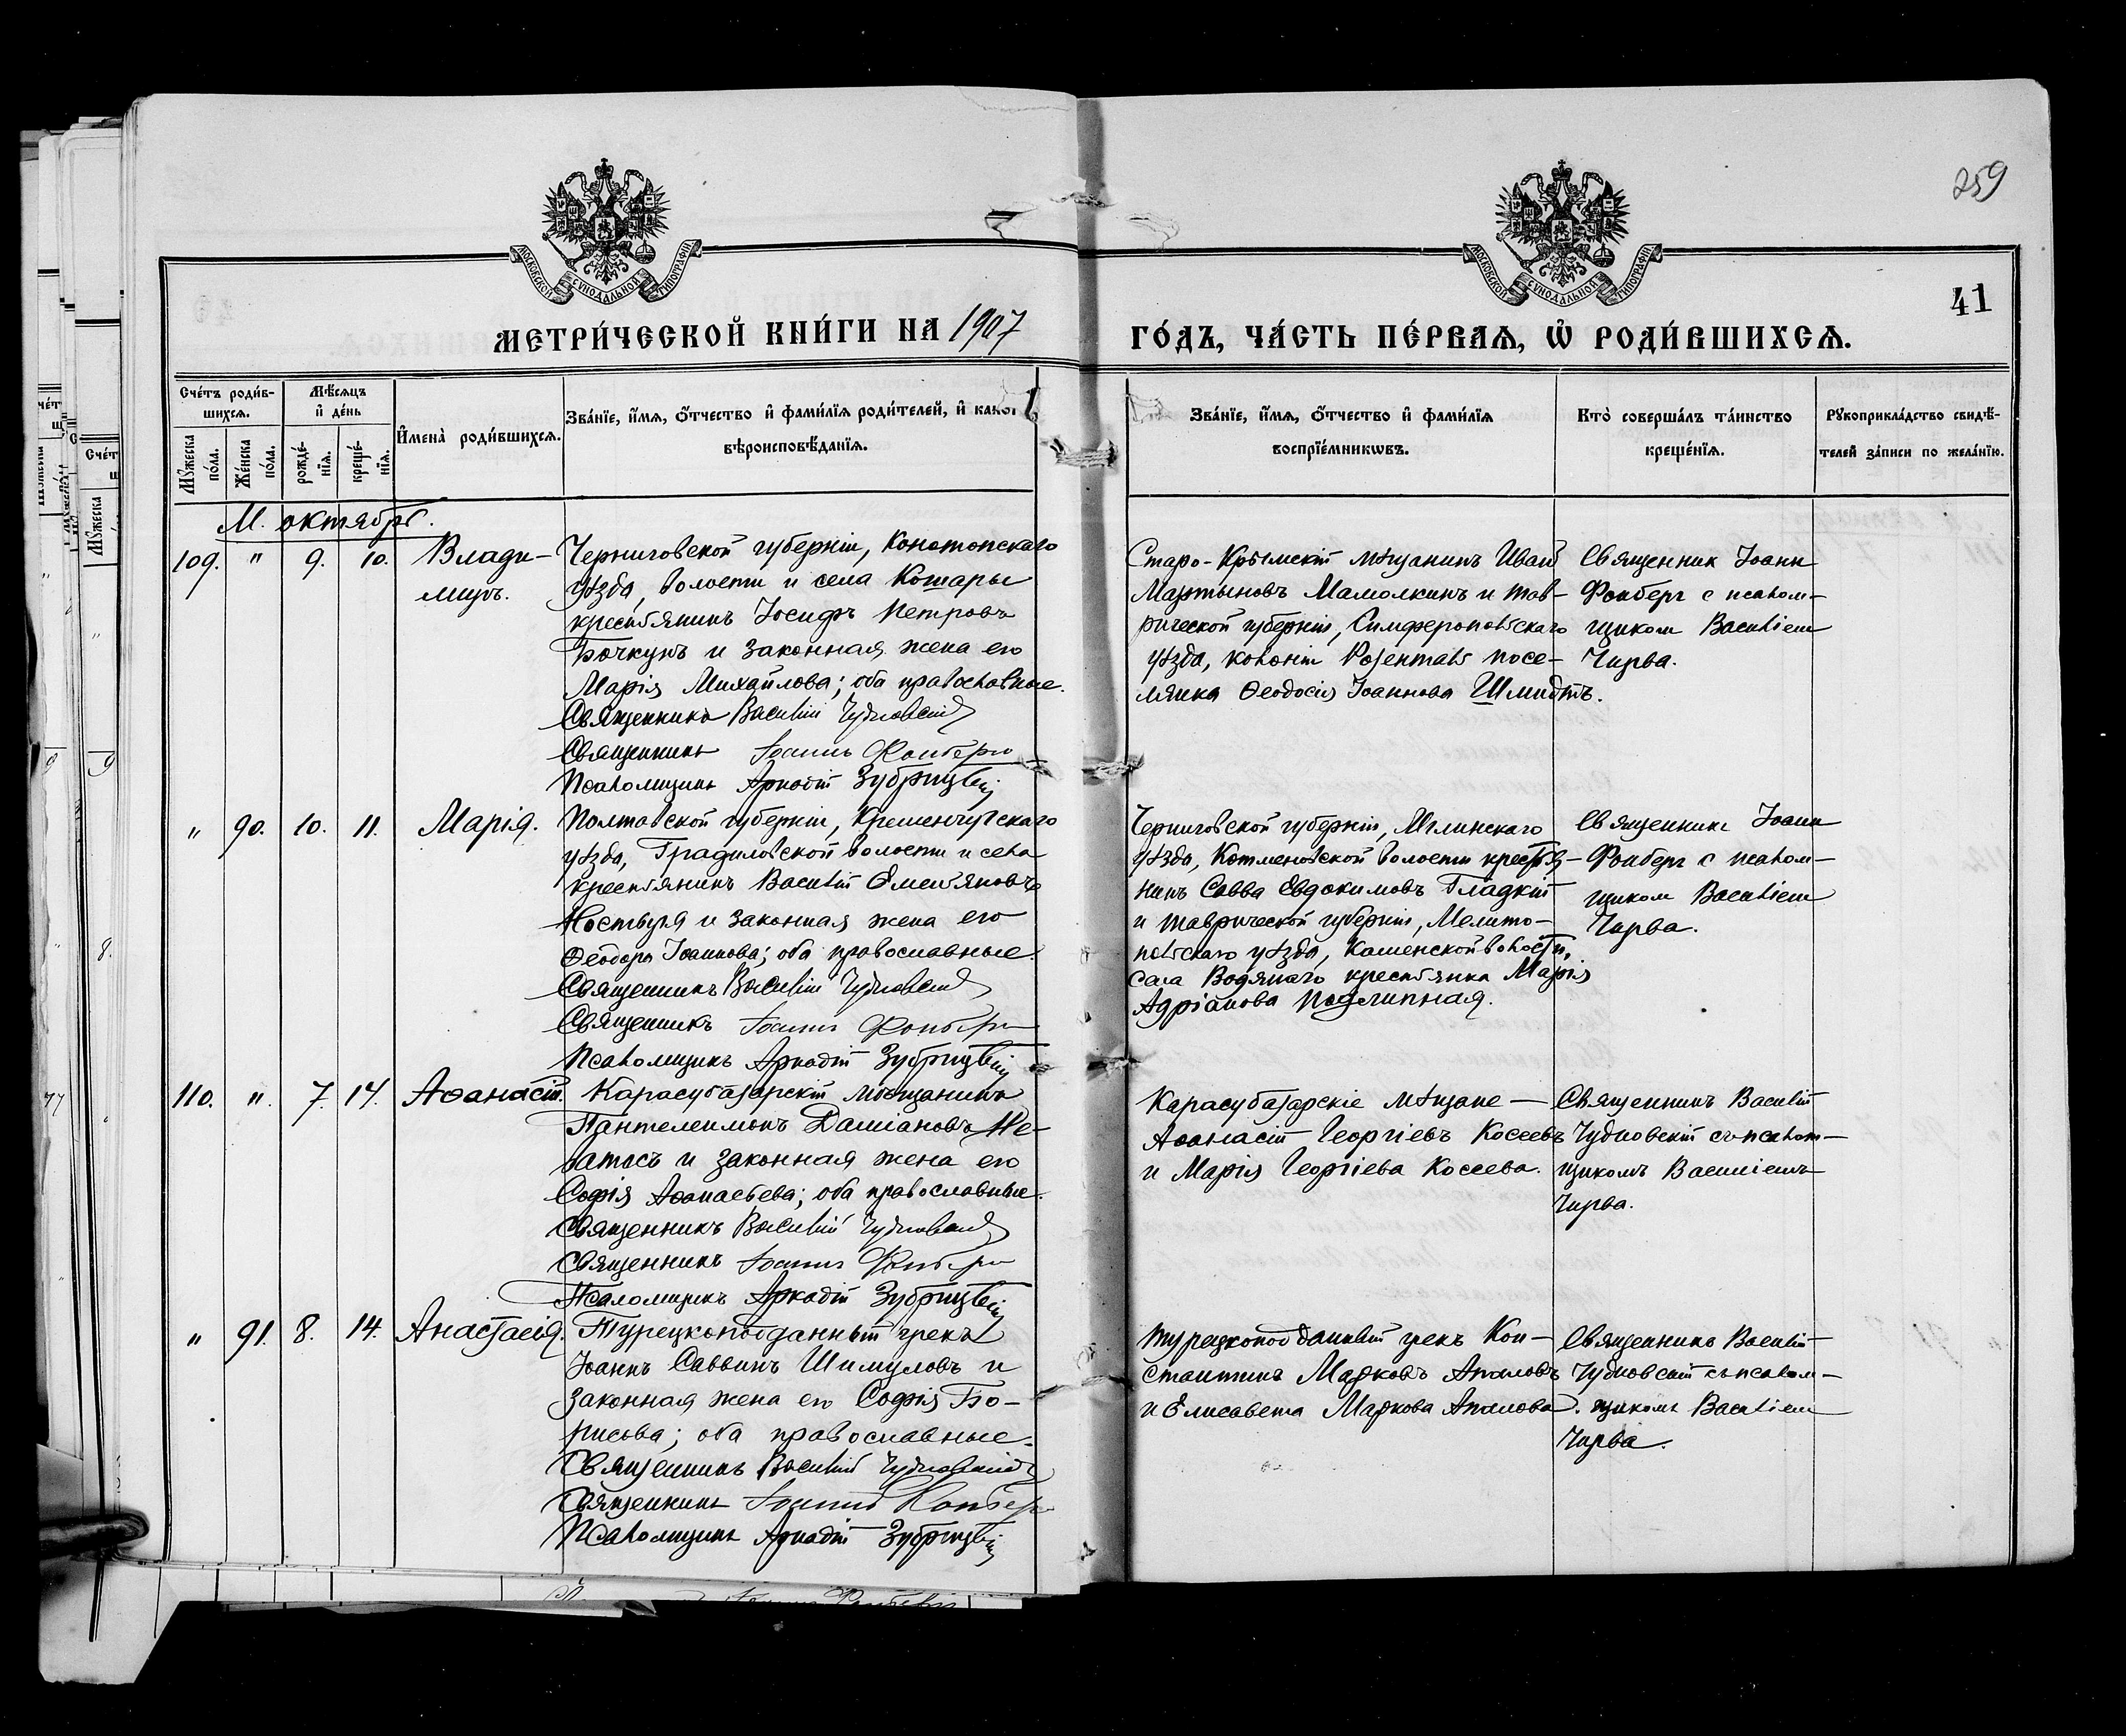 259
41
МОСКОВСКОЙ СѴНОДАЛЬНОЙ ТИПОГРАФІИ
МОСКОВСКОЙ СѴНОДАЛЬНОЙ ТИПОГРАФІИ
МЕТРИ́ЧЕСКОЙ КНИ́ГИ НА 1907
ГО́ДЪ, ЧА́СТЬ ПЕ́РВАѦ, Ѡ҆ РОДИ́ВШИХСѦ.
Сче́тъ роди́в-
шихсѧ.
Мꙋ́жеска по́ла.
Же́нска по́ла.
Мѣ́сѧцъ
и҆ де́нь
рожде́-
нїѧ.
креще́-
нїѧ.
И҆мена̀ роди́вшихсѧ.
Зва́нїе, и҆́мѧ, ѻ҆́тчество и҆ фами́лїѧ роди́телей, и҆ како́гѡ
вѣроисповѣ́данїѧ.
Зва́нїе, и҆́мѧ, ѻ҆́тчество и҆ фами́лїѧ
воспрїе́мникѡвъ.
Кто̀ соверша́лъ та́инство
креще́нїѧ.
Рꙋкоприкла́дство свидѣ́-
телей за́писи по жела́нїю.
М. октябрь.
109. " 9. 10. Влади-
миръ.
Черниговской губерніи, Конотопскаго
уѣзда, волости и села Кошары
крестьянинъ Іосифъ Петровъ
Бочкунъ и законная жена его
Марія Михайлова; оба православные.
Священникъ Василій Чудновскій
Священникъ Іоаннъ Фонберг
Псаломщикъ Аркадій Зубрицкій
Старо-Крымскій мѣщанинъ Иван
Мартыновъ Мамолкинъ и Тав-
рической губерніи, Симферопольскаго
уѣзда, колоніи Розенталь посе-
лянка Ѳеодосія Іоаннова Шмидтъ.
Священник Іоанн
Фонберг с псалом-
щиком Василіем
Чирва.
" 90. 10. 11. Марія.
Полтавской губерніи, Кременчугскаго
уѣзда, Градиловской волости и села
крестьянинъ Василій Омельяновъ
Костыря и законная жена его
Ѳеодора Іоаннова; оба православные.
Священникъ Василій Чудновскій
Священникъ Іоаннъ Фонберг
Псаломщикъ Аркадій Зубрицкій
Черниговской губерніи, Мглинскаго
уѣзда, Котменовской волости крестья-
нинъ Савва Евдокимовъ Гладкій
и Таврической губерніи, Мелито-
польскаго уѣзда, Каменской волости,
села Водянаго крестьянка Марія
Адріанова Подлипная.
Священникъ Іоанн
Фонберг с псалом-
щиком Василіем
Чирва.
110. " 7. 14. Аѳанасій.
Карасубазарскій мѣщанинъ
Пантелеимонъ Даміановъ
и законная жена его
Софія Аѳанасьева; оба православные.
Священникъ Василій Чудновскій
Священникъ Іоаннъ Фонберг
Псаломщикъ Аркадій Зубрицкій
Карасубазарскіе мѣщане —
Аѳанасій Георгіевъ Косеевъ
и Марія Георгіева Косеева.
Священникъ Василій
Чудновскій съ псалом-
щикомъ Василіемъ
Чирва.
" 91. 8. 14. Анастасія.
Турецкоподданный грекъ
Іоаннъ Саввинъ Шимуловъ и
законная жена его Софія Бо-
рисова; оба православные.
Священникъ Василій Чудновскій
Священникъ Іоаннъ Фонберг
Псаломщикъ Аркадій Зубрицкій
Турецкоподданный грекъ Кон-
стантинъ Марковъ Апаловъ
и Елисавета Маркова Апалова.
Священникъ Василій
Чудновскій съ псалом-
щикомъ Василіем
Чирва.